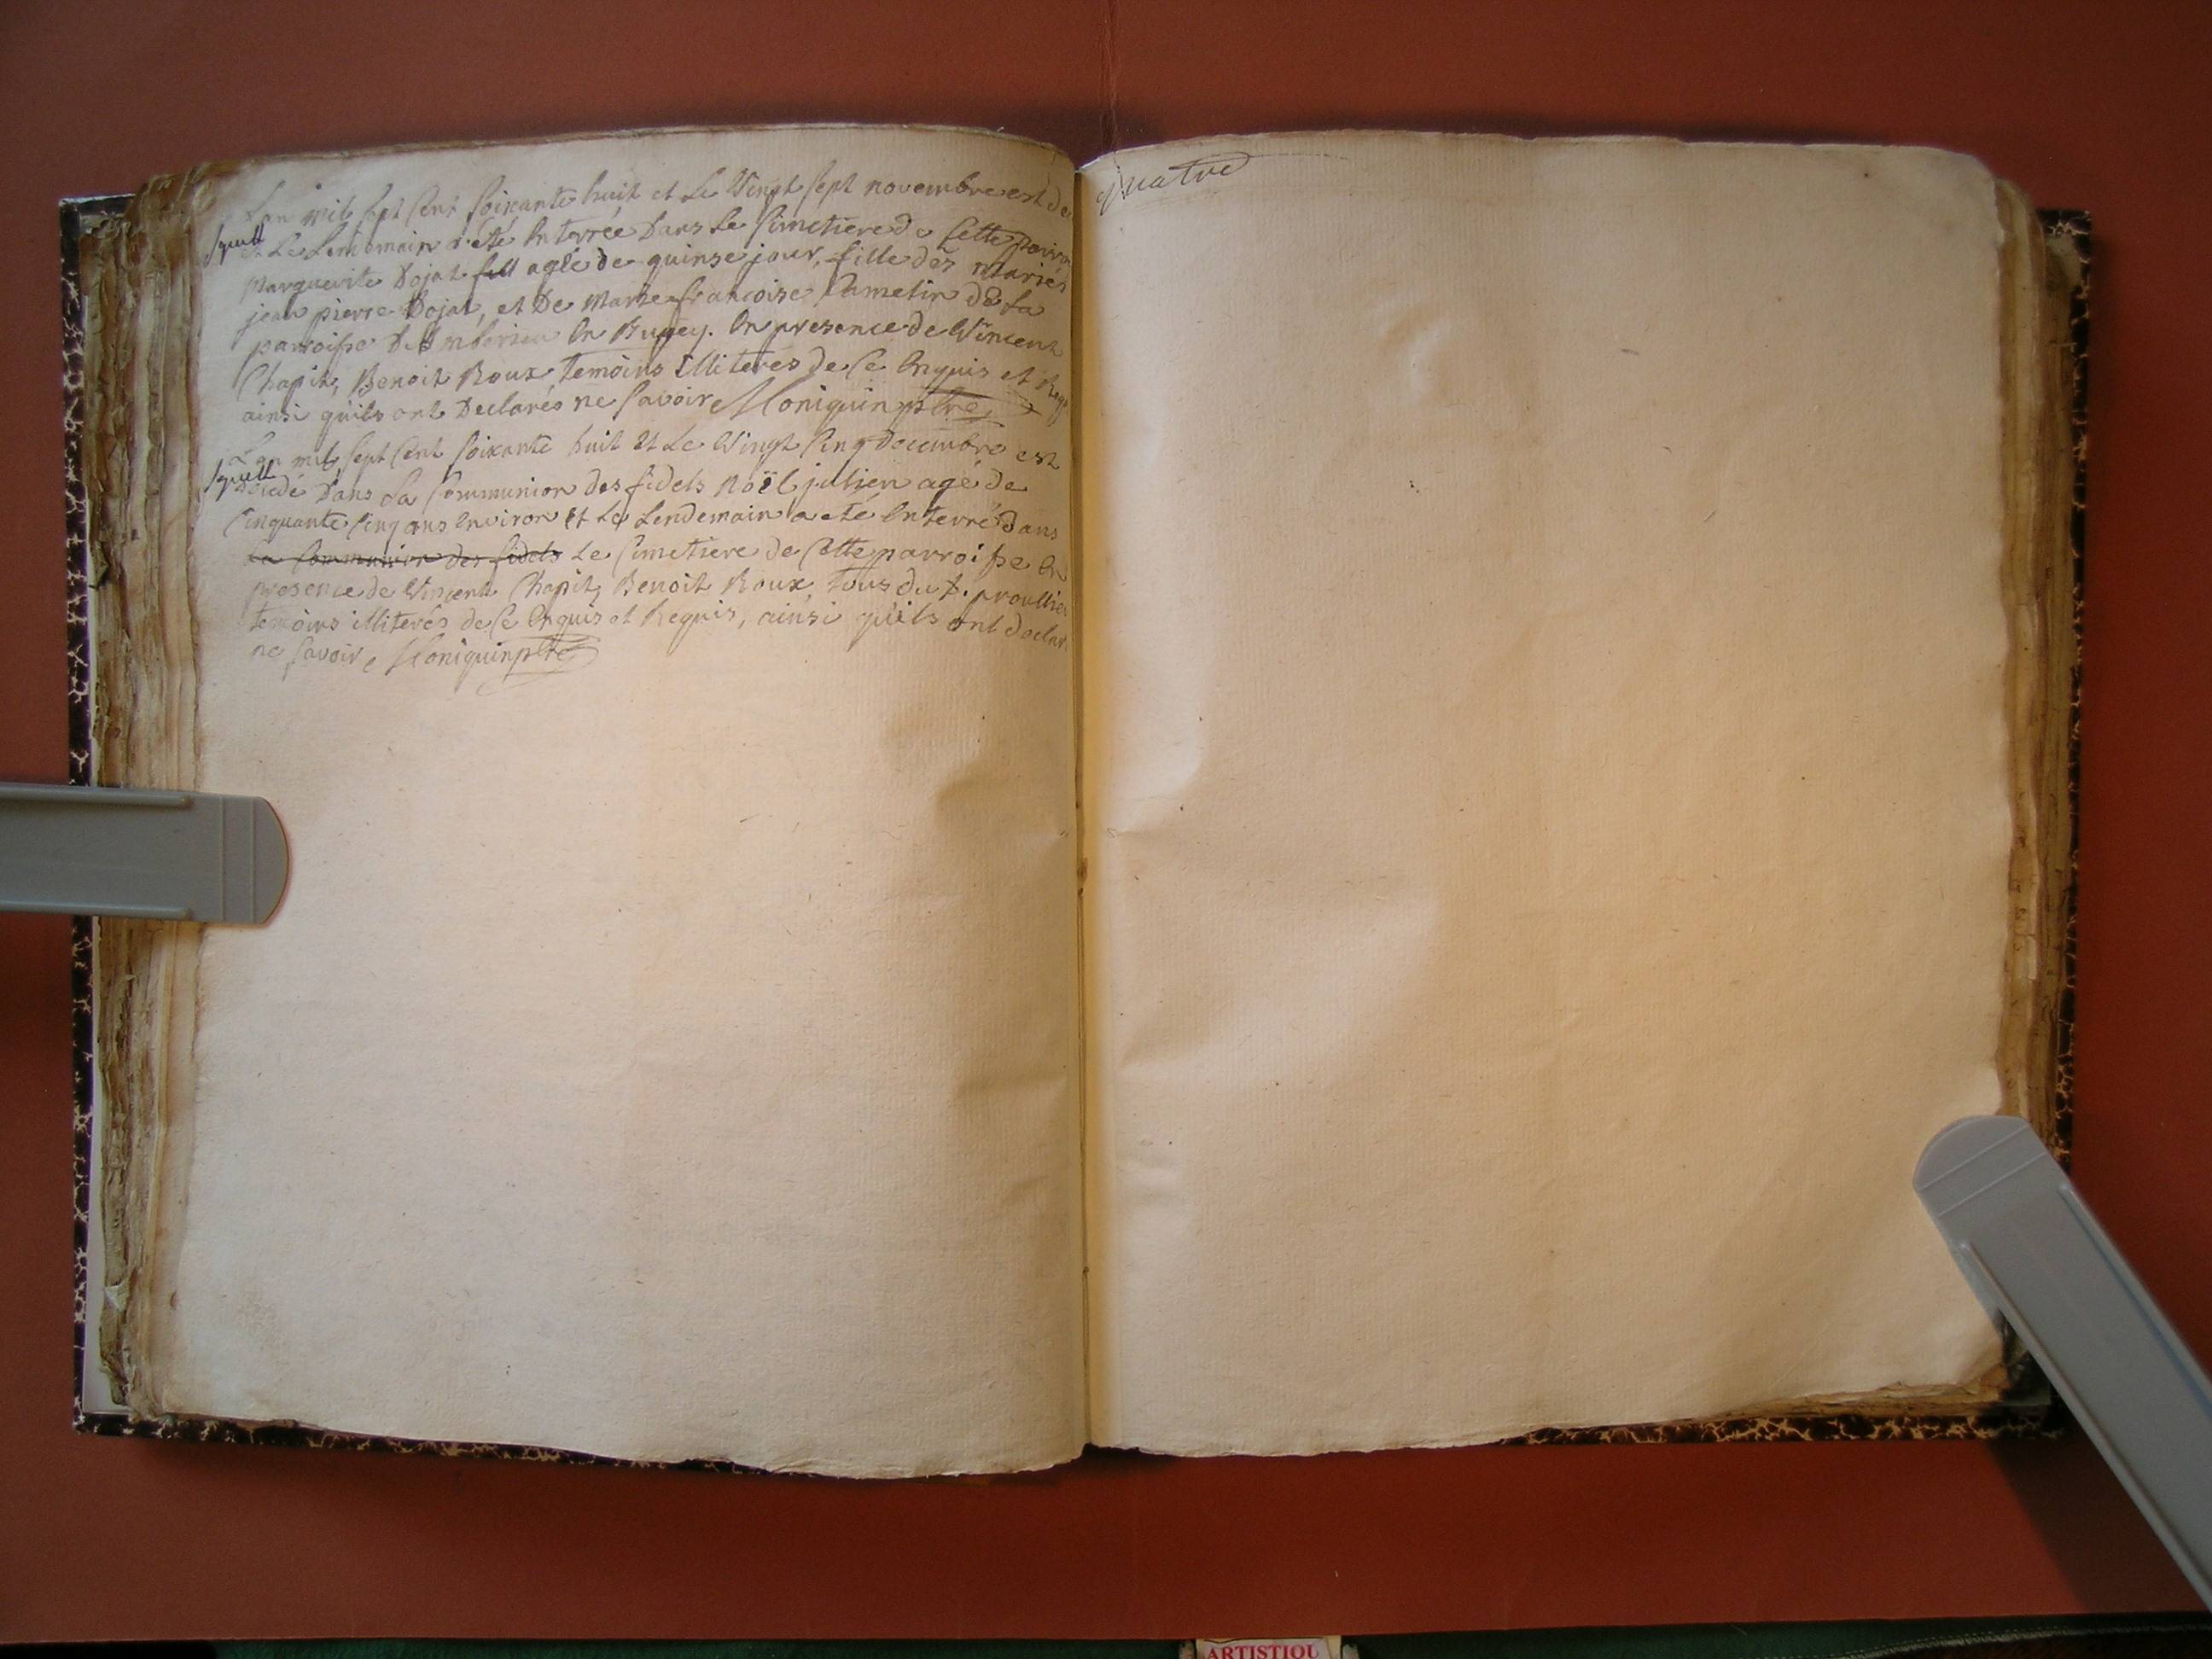 Lan mil sept Cent soixante huit et Le Vingt sept novembre est de
Squell
et Le Lendemain a eté Enterrée Dans Le Cimetiere de Cette parroi
Marguerite Dojat fill agée de quinse jour, fille des mariés
jean pierre Dojat, et De Marie francoise Cametin de La
parroisse D'Amberieu En Bugey. En presence de Vincent
Chapit, Benoit Roux temoins Illiteres de Ce Enquis et Req
ainsi quils ont Declarés ne Savoir Moniquin ptre
Lan mil sept Cent soixante huit Et Le Vingt Cinq decembre est
Squell
decedé Dans La Communion des fidels Noël julien agé de
Cinquante Cinq ans Environ Et Le Lendemain a eté Enterré dans
La Communion des fidels Le Cimetiere de Cette parroisse En
presence de Vincent Chapit, Benoit Roux, tous du d. proullieu
temoins illiterés de Ce Enquis et Requis, ainsi qu'ils ont declar
ne Savoir Moniquin ptre
quatre
ARTISTIQU